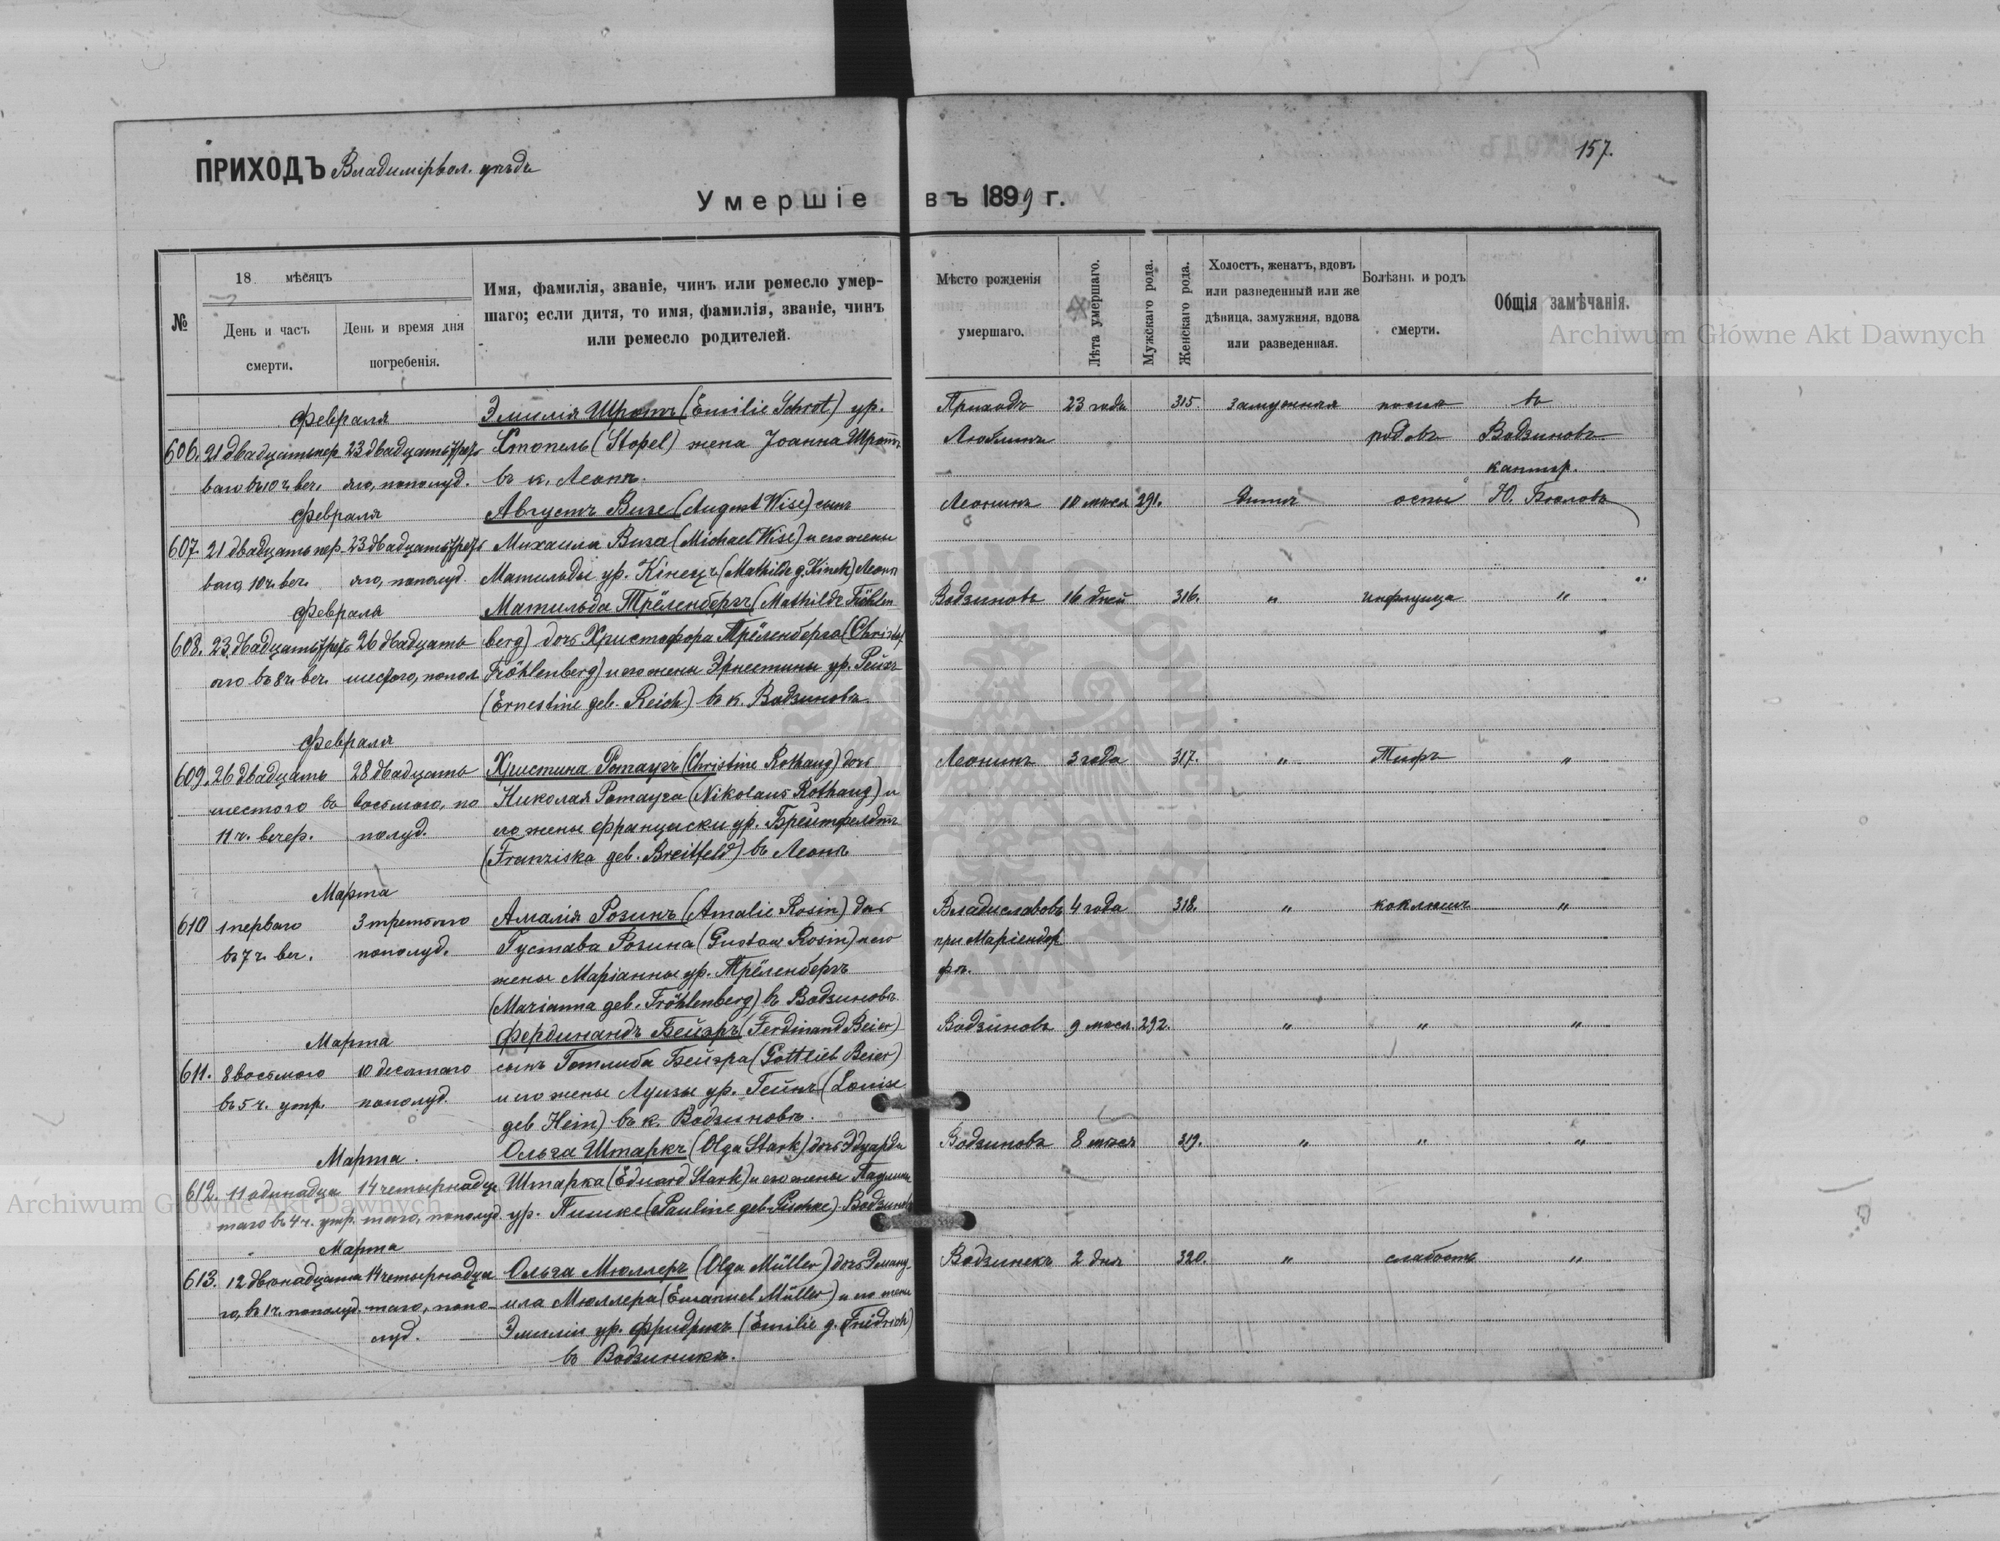 157.
ПРИХОДЪ Владимірвол. уѣздъ
Умершіе въ 1899 г.
№
18 мѣсяцъ
День и часъ смерти.
День и время дня погребенія.
Имя, фамилія, званіе, чинъ или ремесло умер-
шаго; если дитя, то имя, фамилія, званіе, чинъ
или ремесло родителей.
Мѣсто рожденія
умершаго.
Лѣта умершаго.
Мужскаго рода.
Женскаго рода.
Холостъ, женатъ, вдовъ
или разведенный или же
дѣвица, замужняя, вдова
или разведенная.
Болѣзнь и родъ
смерти.
Общія замѣчанія.
Archiwum Główne Akt Dawnych
февраля Эмилія Шротъ (Emilie Schrot) ур. Приходъ 23 года 315. замужняя после въ
606. 21 двадцатьпер 23 двадцатьтреть Стопель (Stopel) жена Іоанна Шротъ Люблинъ родовъ Водзиновъ
ваго въ 10 ч веч. яго, пополуд. въ к. Леонъ. кантор.
февраля Августъ Визе (August Wise) сынъ Леонинъ 10 мѣся 291. дитя оспы Ю. Бюловъ
607. 21 двадцатьпер. 23 двадцатьтреть Михаила Визе (Michael Wise) и его жены
ваго, 10 ч. веч. яго, пополуд. Матильды ур. Кінецъ (Mathilde g. Kinek) Леонъ
февраля Матильда Трёленбергъ (Mathilde Fröhlen Водзиновъ 16 дней 316. " инфлуица "
608. 23 двадцатьтреть 26 двадцать berg) дочь Христофора Трёленберга (Christof
яго въ 8 ч. веч. шестого, попол. Fröhlenberg) и его жены Эрнестины ур. Рейхъ
(Ernestine geb. Reich) въ к. Водзиновъ.
февраля
609. 26 двадцать 28 двадцать Христина Ротаугъ (Christine Rothaug) дочь Леонинъ 3 года 317. " Тифъ "
шестого въ восьмого, по Николая Ротауга (Nikolaus Rothaug) и
11 ч. вечер. полуд. его жены Француски ур. Брейтфелдтъ
(Franziska geb. Breitfeld) въ Леонъ
Марта
610 1 перваго 3 третьяго Амалія Розинъ (Amalie Rosin) дочь Владиславовъ 4 года 318. " коклюшъ "
въ 7 ч. веч. пополуд. Густава Розина (Gustav Rosin) и его при Маріендор
жены Маріанны ур. Трёленбергъ фъ.
(Marianna geb. Fröhlenberg) въ Водзиновъ
Марта Фердинандъ Бейэръ (Ferdinand Beier) Водзиновъ 9 мѣся. 292. " " "
611. 8 восьмого 10 десятаго сынъ Готлиба Бейэра (Gottlieb Beier)
въ 5 ч. утр. пополуд. и его жены Луизы ур. Гейнъ (Louise
geb Hein) въ к. Водзиновъ.
Марта. Ольга Штаркъ (Olga Stark) дочь Эдуарда Водзиновъ 8 мѣся 319. " " "
612. 11 одинадца 14 четырнадца Штарка (Eduard Stark) и его жены Паулины
таго въ 4 ч. утр. таго, пополуд. ур. Пишке (Pauline geb. Pischke). Водзиновъ
Марта
613. 12 двѣнадцата 14 четырнадца Ольга Мюллеръ (Olga Müller) дочь Эману Водзинекъ 2 дня 320. " слабость "
го, въ 1 ч. пополуд. таго, попо- ила Мюллера (Emanuel Müller) и его жены
луд. Эмиліи ур. Фридрихъ (Emilie g. Friedrich)
въ Водзиникъ.
Archiwum Główne Akt Dawnych